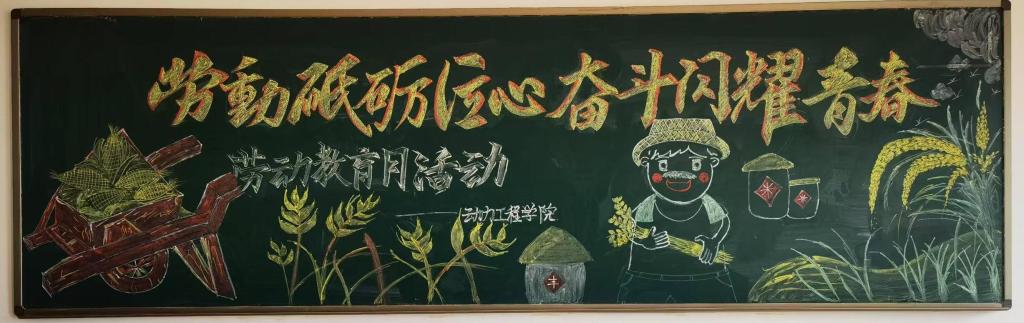 劳動砥砺匠心 奋斗闪耀青春
劳动教育月活动
——动力工程学院
米
米
丰